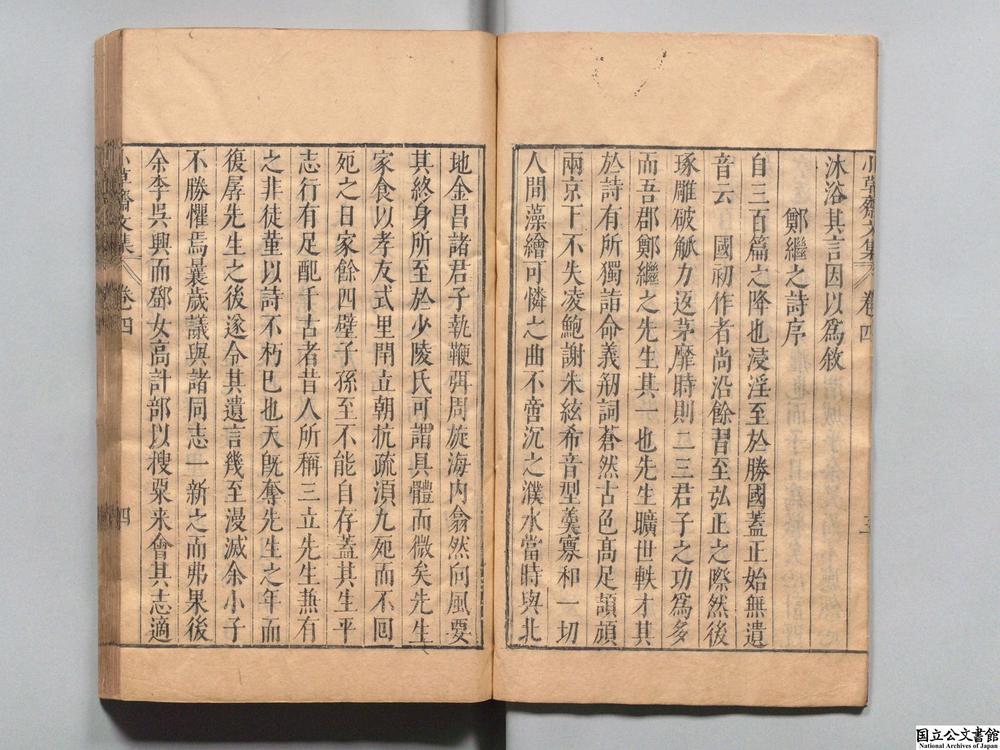 小草齋文集 卷四 三
沐浴其言因以為敘
鄭繼之詩序
自三百篇之降也浸淫至於勝國蓋正始無遺
音云國初作者尚沿餘習至弘正之際然後
琢雕破觚力返茅靡時則二三君子之功為多
而吾郡鄭繼之先生其一也先生曠世軼才其
於詩有所獨詣命義剏詞蒼然古色高足頡頏
兩京下不失凌鮑謝朱絃希音型羹寡和一切
人間藻繪可憐之曲不啻沉之濮水當時與北
地金昌諸君子執鞭弭周旋海內翕然向風要
其終身所至於少陵氏可謂具體而微矣先生
家食以孝友式里閈立朝抗疏瀕九死而不回
死之日家餘四壁子孫至不能自存蓋其生平
志行有足配千古者昔人所稱三立先生兼有
之非徒菫以詩不朽已也天旣奪先生之年而
復孱先生之後遂令其遺言幾至漫滅余小子
不勝懼焉曩歲議與諸同志一新之而弗果後
余李吳興而鄧女高計部以搜粟来會其志適
小草齋文集 卷四 四
国立公文書館
National Archives of Japan